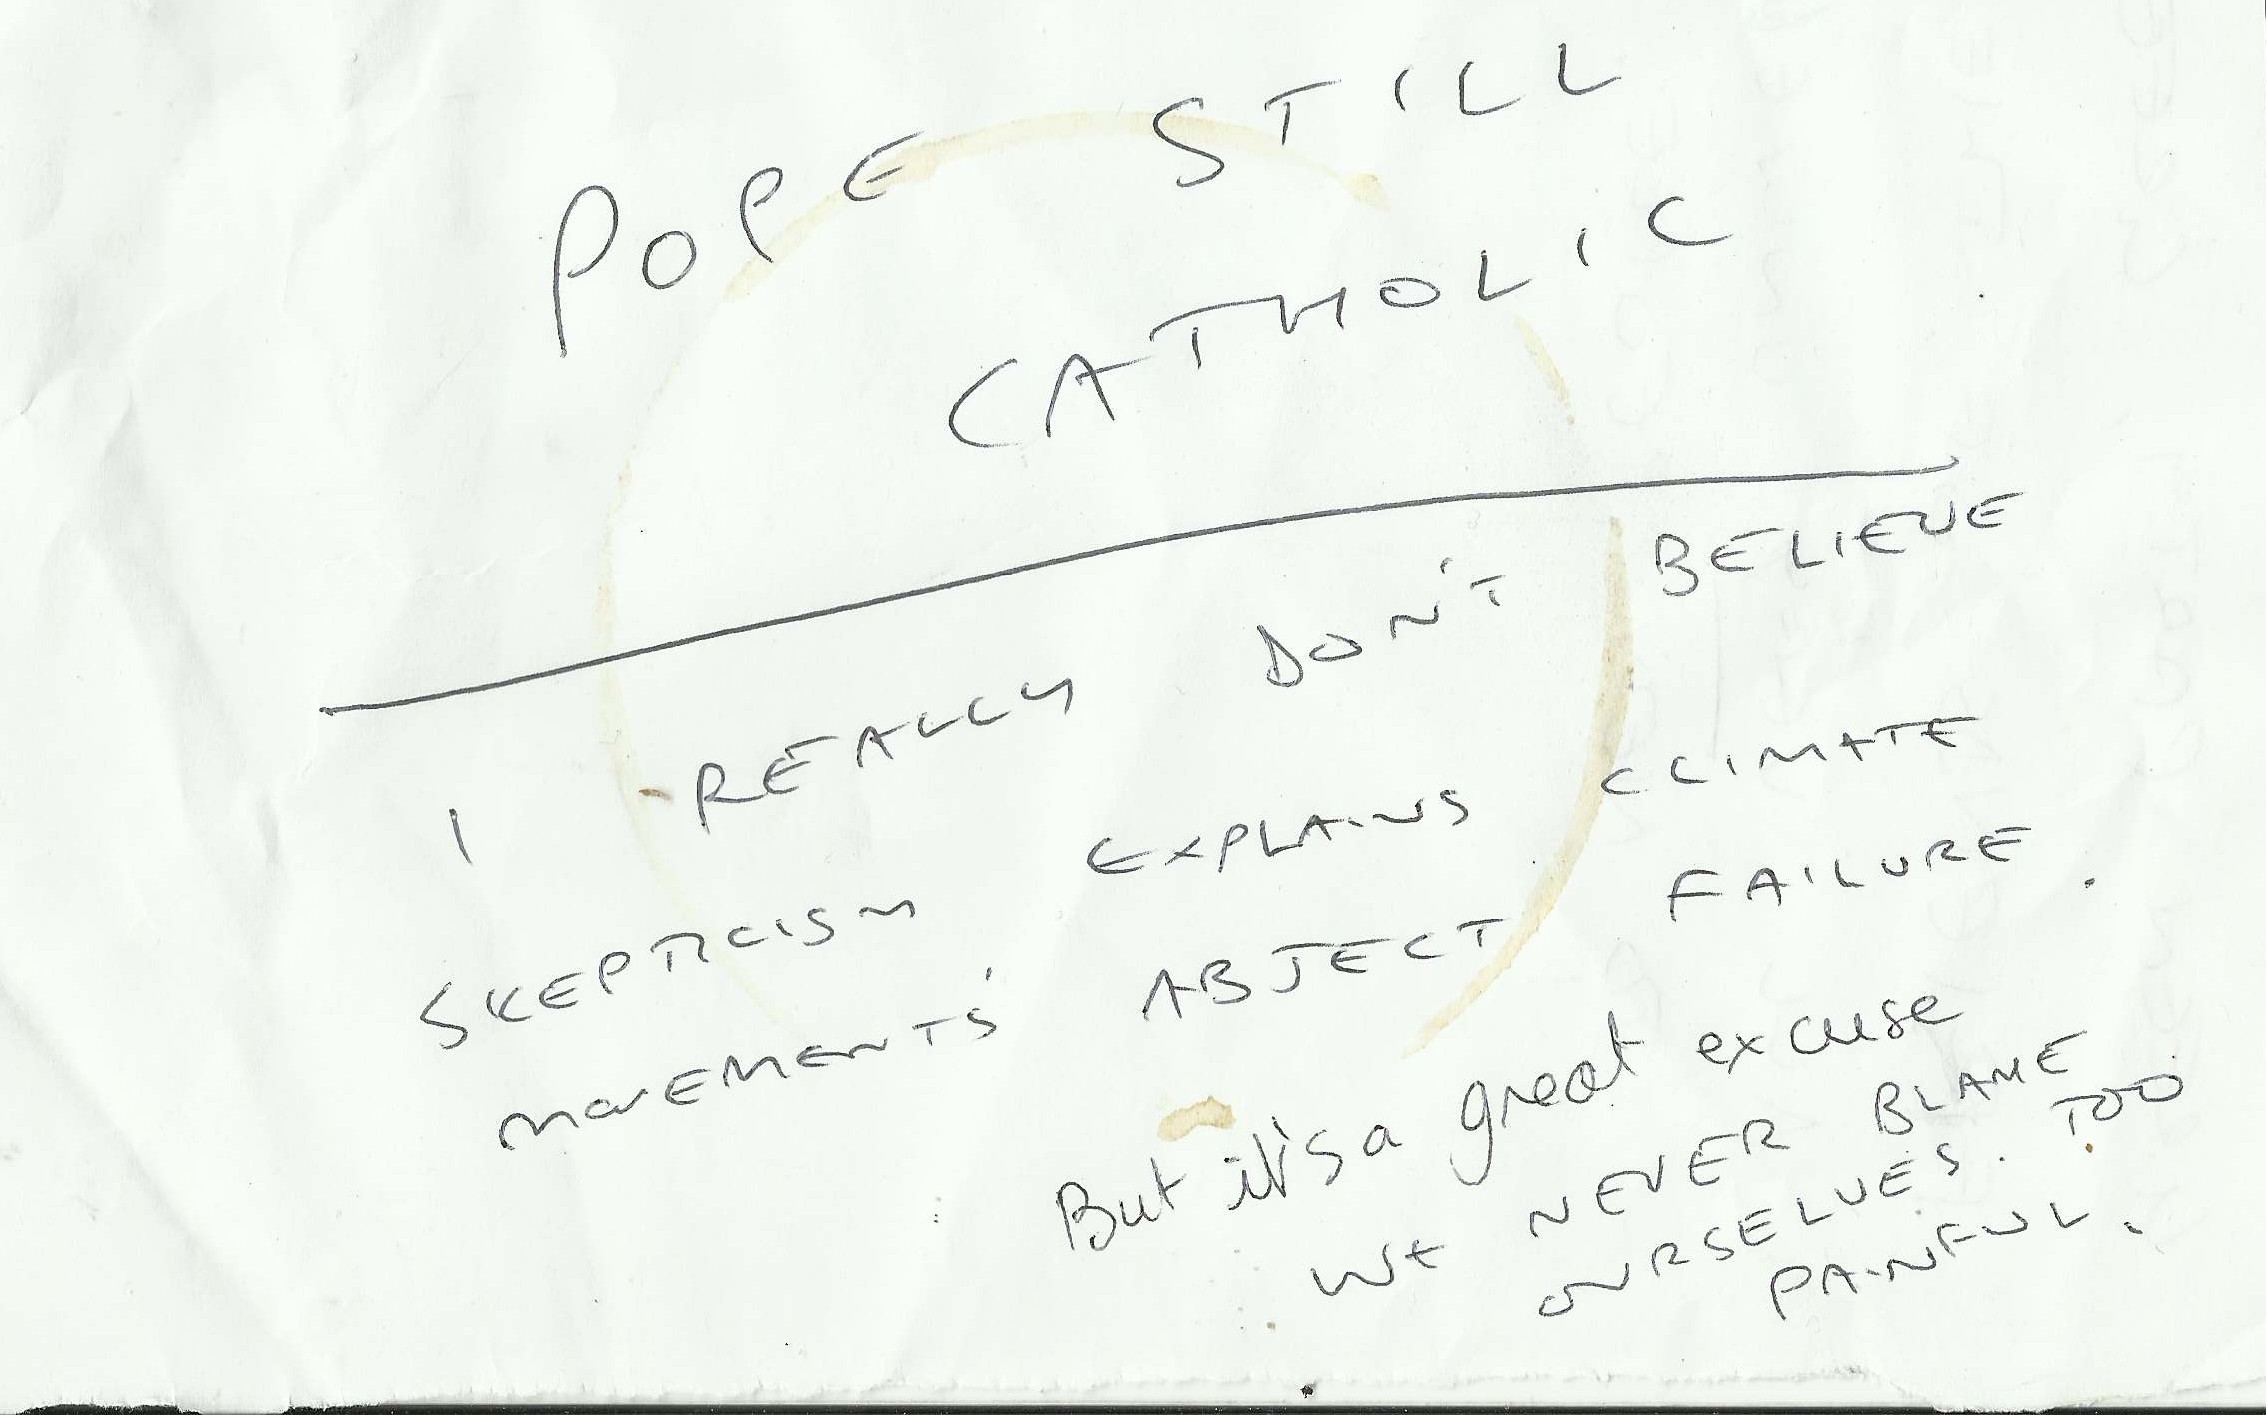 POPE STILL
CATHOLIC
I REALLY DON'T BELIEVE
SKEPTICISM EXPLAINS CLIMATE
MOVEMENTS' ABJECT FAILURE.
But it's a great excuse
WE NEVER BLAME
OURSELVES. TOO
PAINFUL.